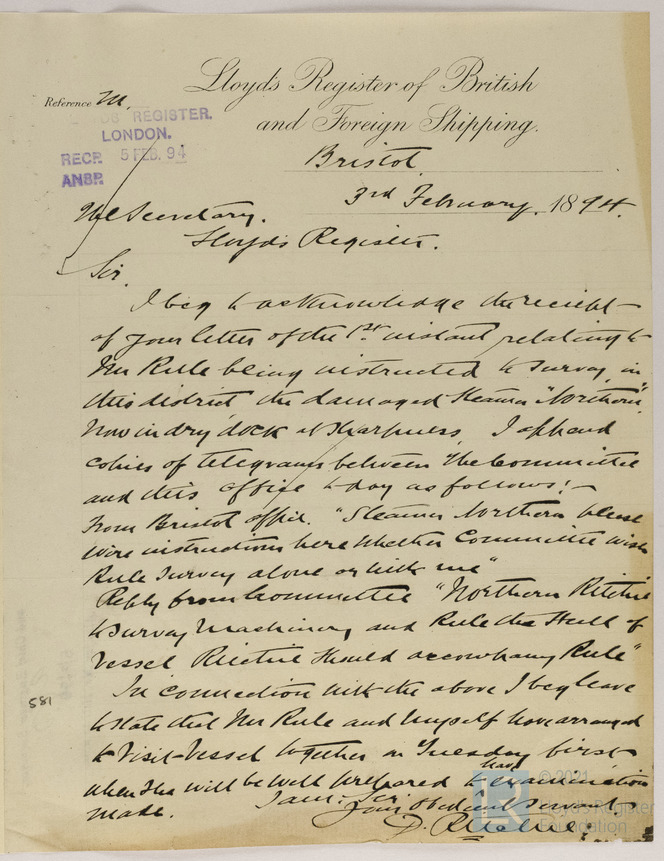 Lloyd's Register of British
and Foreign Shipping.
Reference M.
LLOYDS REGISTER.
LONDON.
RECD. 5 FEB. 94
ANSD.
Bristol
3rd February 1894.
The Secretary.
Lloyd's Register.
Sir.
I beg to acknowledge the receipt
of your letter of the 1st instant relating to
Mr Rule being instructed to survey in
this district the damaged Steamer "Northern",
now in dry dock at Sharpness. I append
copies of telegrams between the Committee
and this office to day as follows:-
From Bristol office. "Steamer Northern please
wire instructions here whether Committee wish
Rule Survey alone or with me"
Reply from Committee "Northern Ritchie
to survey Machinery and Rule the Hull of
Vessel Ritchie should accompany Rule"
In connection with the above I beg leave
to state that Mr Rule and myself have arranged
to visit Vessel together on Tuesday first
when she will be well prepared to have examination
made.
I am, Sir,
Your obedient servant.
D. Ritchie.
581
© 2021
Lloyd's Register
Foundation